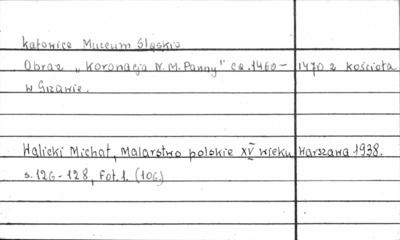 Katowice Muzeum Śląskie
Obraz „Koronacja N.M. Panny" ca. 1460 - 1470 z kościoła
w
Walicki Michał, Malarstwo polskie XV wieku, Warszawa 1938.
s. 126 - 128, Fot. 1. (106)